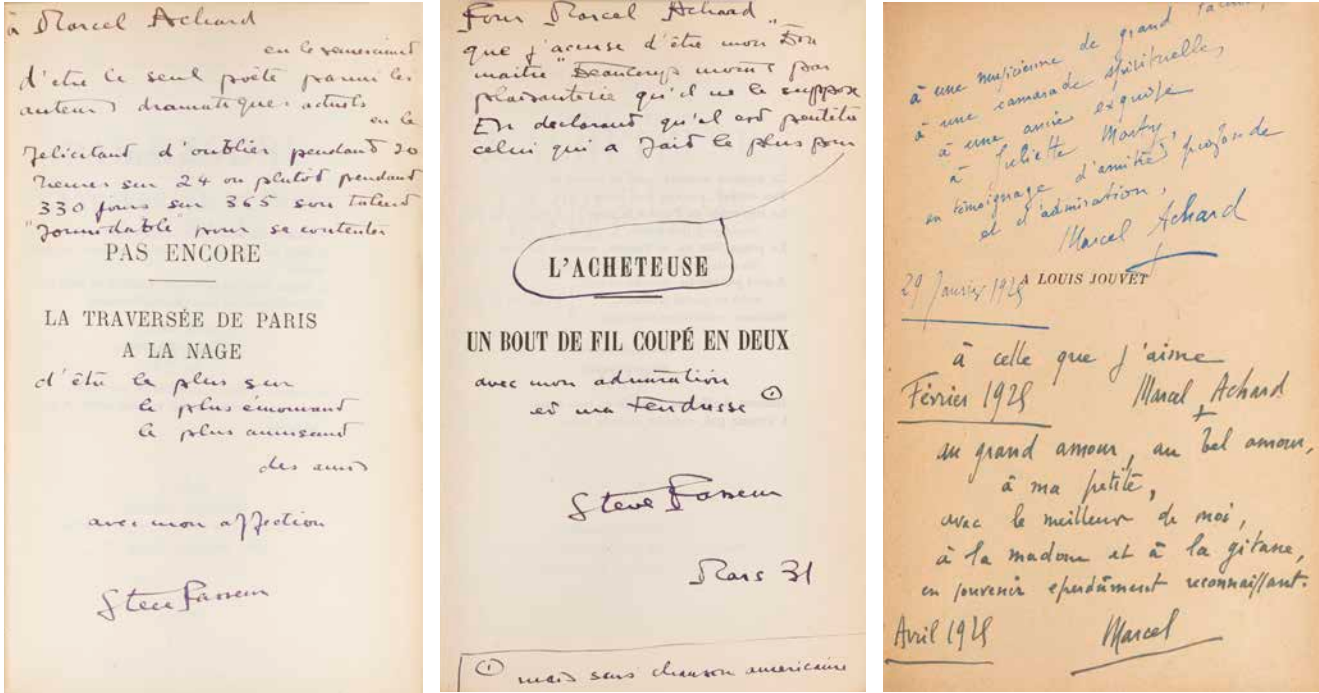 à Marcel Achard
en le remerciant
d'être le seul poète parmi les
auteurs dramatiques actuels
en le
félicitant d'oublier pendant 20
heures sur 24 ou plutôt pendant
330 jours sur 365 son talent
"formidable" pour se contenter
PAS ENCORE
LA TRAVERSÉE DE PARIS
A LA NAGE
d'être le plus sur
le plus émouvant
le plus amusant
des amis
avec mon affection
Steve Passeur
Pour Marcel Achard
que j'accuse d'être mon "Bon
maitre" Beaucoup moins par
plaisanterie qu'il ne le suppose
En declarant qu'il est peutêtre
celui qui a fait le plus pour
L'ACHETEUSE
UN BOUT DE FIL COUPÉ EN DEUX
avec mon admiration
et ma tendresse ①
Steve Passeur
Mars 31
① mais sans chanson americaine
à une musicienne de grand
à une camarade spirituelle,
à une amie exquise
à Juliette Marty,
en témoignage d'amitié profonde
et d'admiration,
Marcel Achard
A LOUIS JOUVET
29 Janvier 1925
à celle que j'aime
Février 1925 Marcel Achard
au grand amour, au bel amour,
à ma petite,
avec le meilleur de moi,
à la madone et à la gitane,
en souvenir éperdûment reconnaissant.
Avril 1925 Marcel